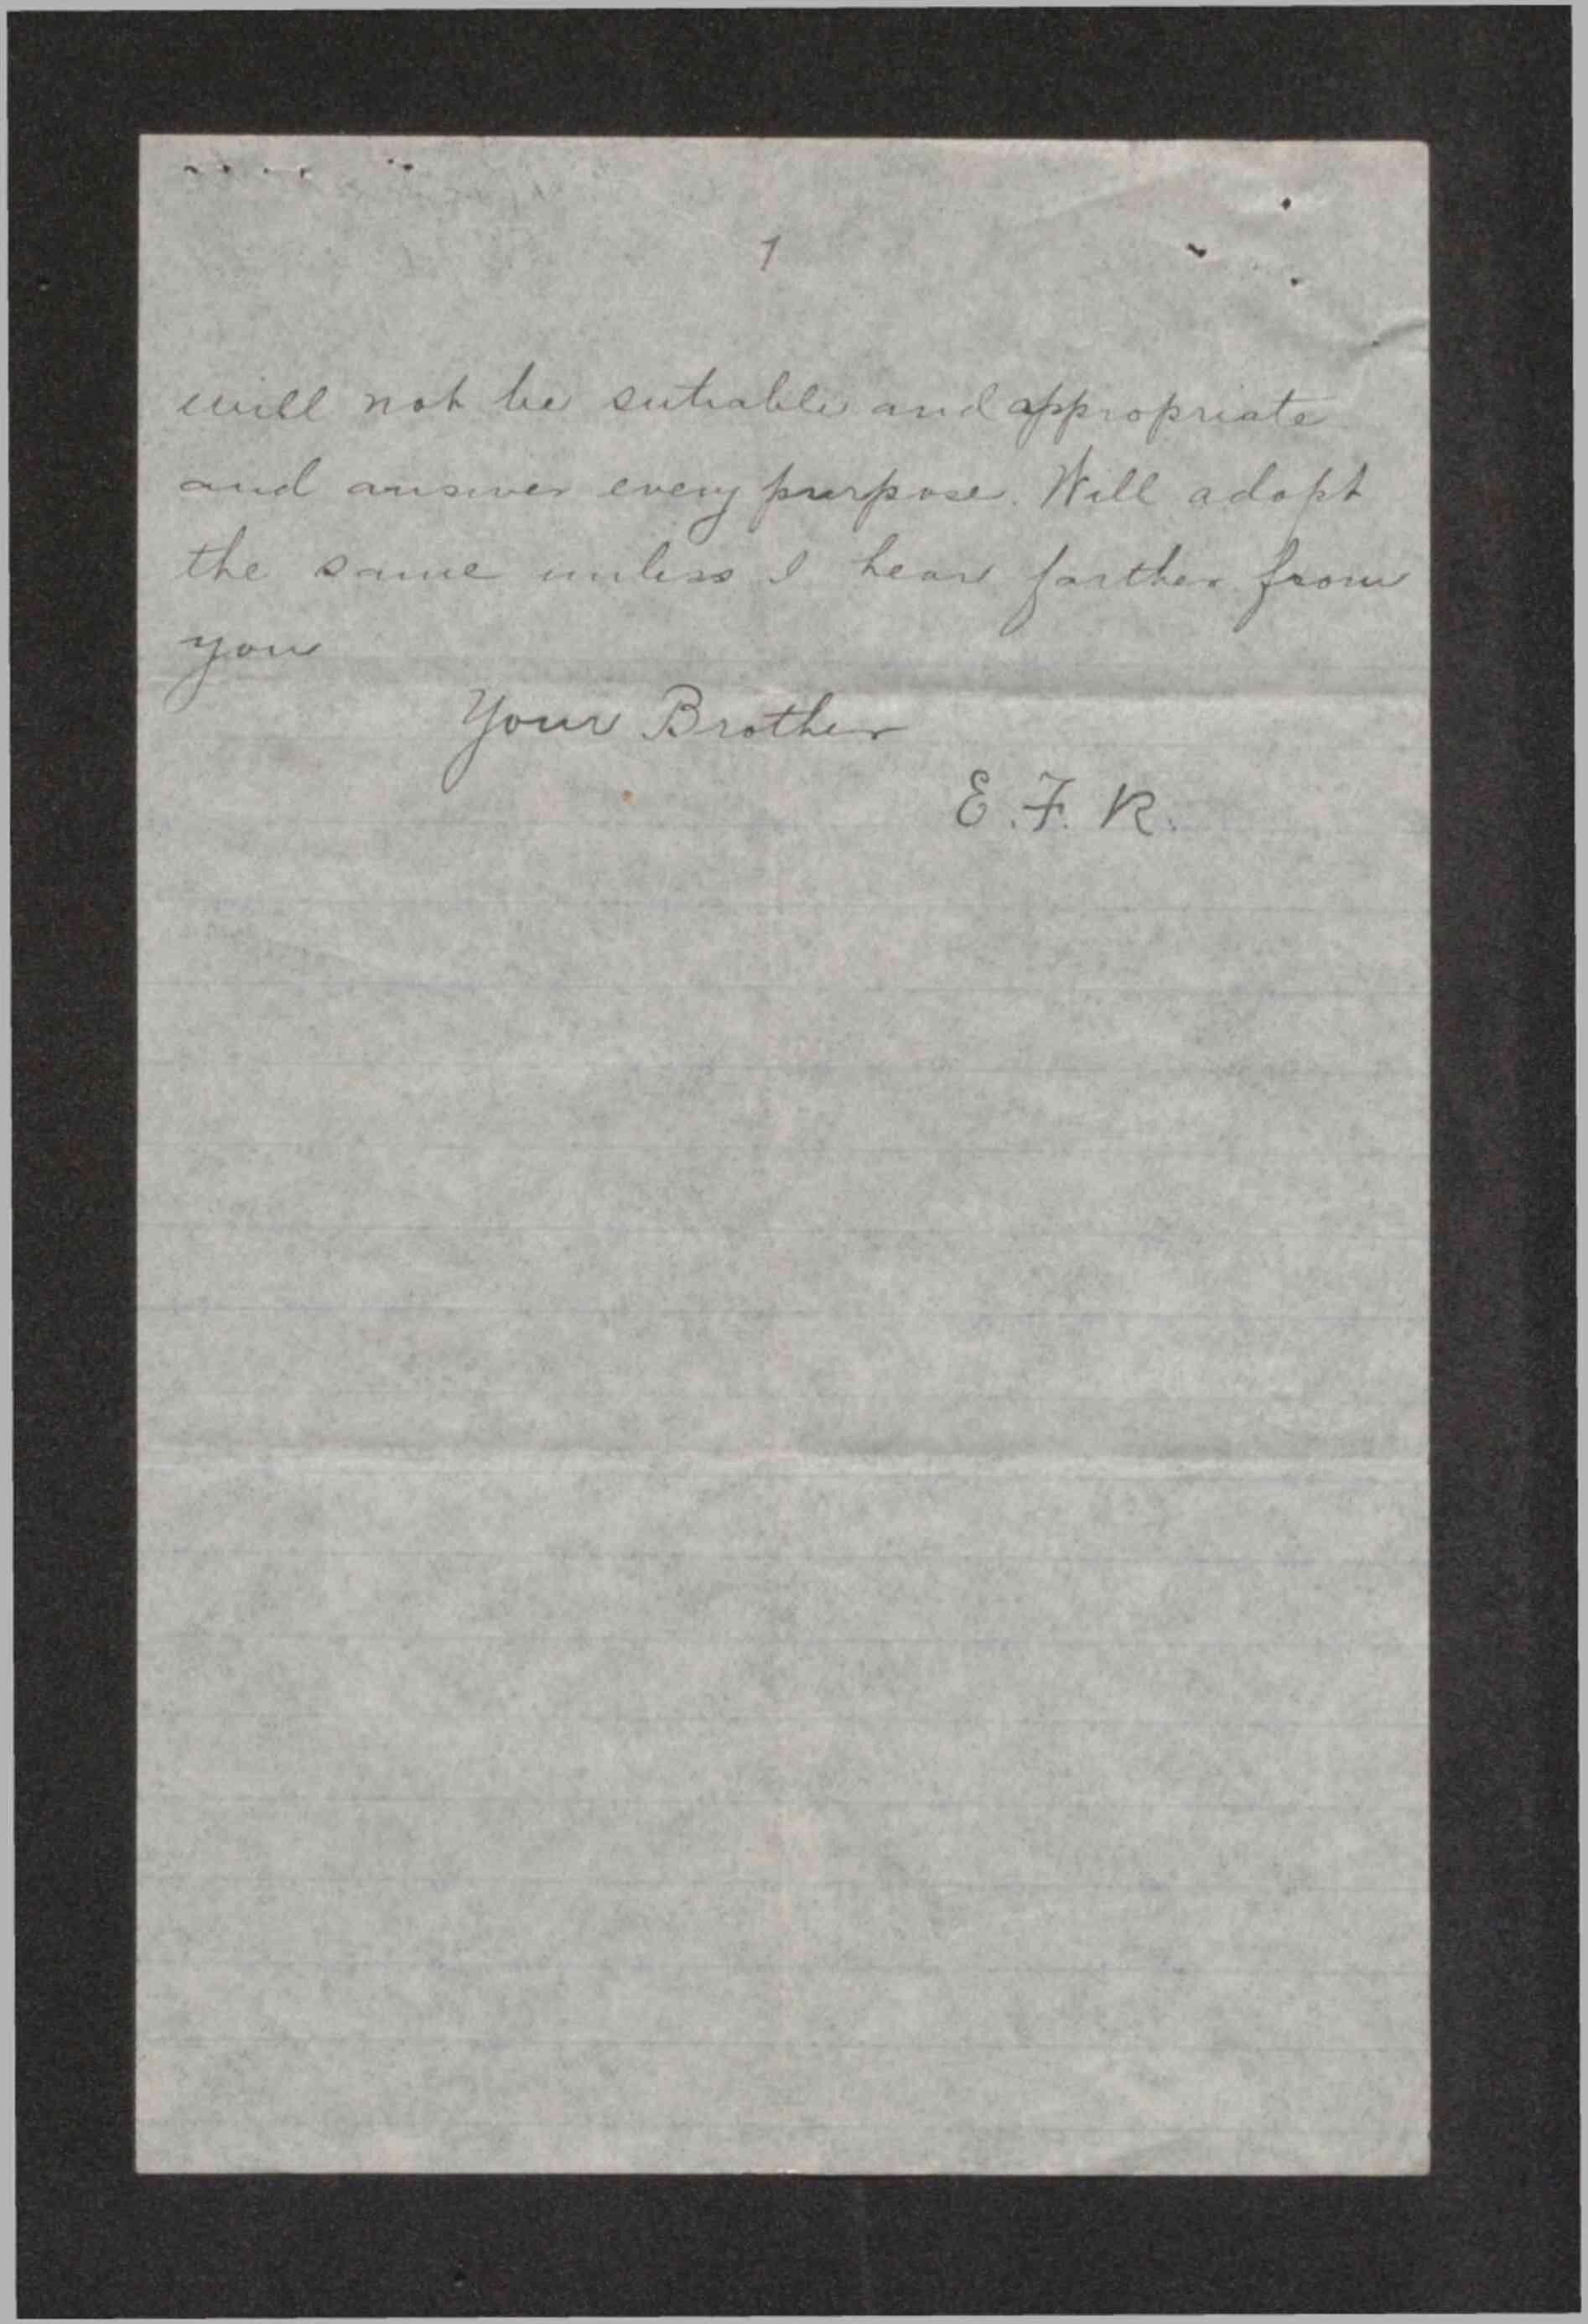 1
will not be sutiable and appropriate
and answer every purpose. Will adopt
the same unless I hear farther from
you
Your Brother
E. F. R.